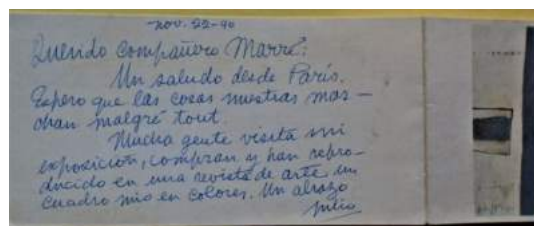 nov. 22-90
Querido compañero Marré:
Un saludo desde París.
Espero que las cosas nuestras mar-
chan malgré tout.
Mucha gente visita mi
exposición, compran y han repro-
ducido en una revista de arte un
cuadro mío en colores. Un abrazo
Julio